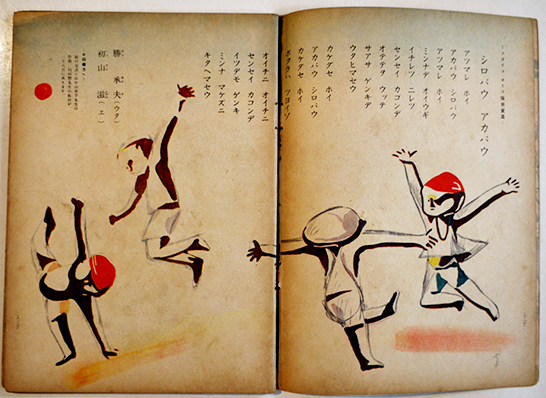 シロバウ アカバウ
アツマレ ホイ
アカバウ シロバウ
アツマレ ホイ
ミンナデ オイウギ
イチレツ ニレツ
センセイ カコンデ
オテテヲ ウッテ
サアサ ゲンキデ
ウタヒマセウ
カケアシ ホイ
アカバウ シロバウ
カケアシ ホイ
ボクラハ ツヨイゾ
オイチニ オイチニ
センセイ カコンデ
イツデモ ゲンキ
ミンナ マケズニ
キタヘマセウ
勝 承夫(ウタ)
初山 滋(エ)